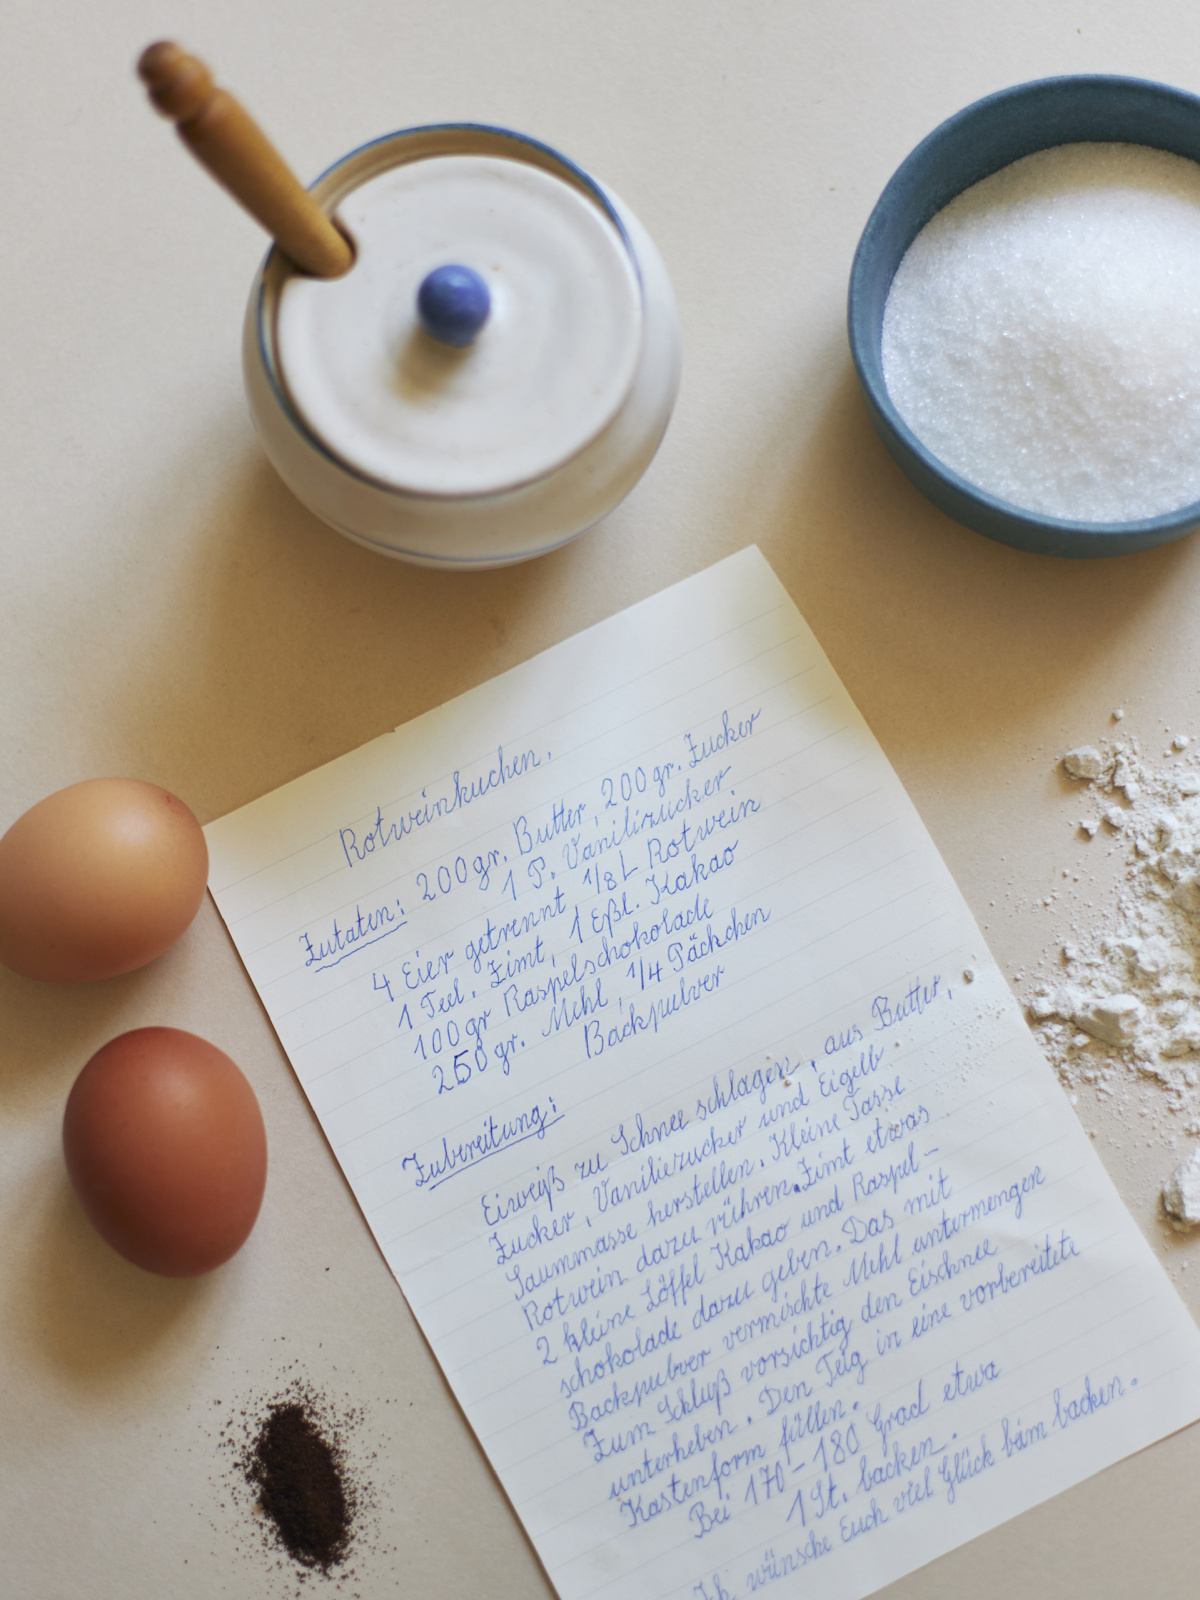 Rotweinkuchen.
Zutaten: 200gr. Butter, 200gr. Zucker
1 P. Vanilizucker
4 Eier getrennt, 1/8 L Rotwein
1 Teel. Zimt, 1 Eßl. Kakao
100gr Raspelschokolade
250gr. Mehl, 1/4 Päckchen
Backpulver
Zubereitung:
Eiweiß zu Schnee schlagen, aus Butter,
Zucker, Vaniliezucker und Eigelb
Saummasse herstellen. Kleine Tasse
Rotwein dazu rühren. Zimt etwas
2 kleine Löffel Kakao und Raspel-
schokolade dazu geben. Das mit
Backpulver vermischte Mehl untermengen
Zum Schluß vorsichtig den Eischnee
unterheben. Den Teig in eine vorbereitete
Kastenform füllen.
Bei 170-180 Grad etwa
1 St. backen.
Ich wünsche Euch viel Glück beim backen.